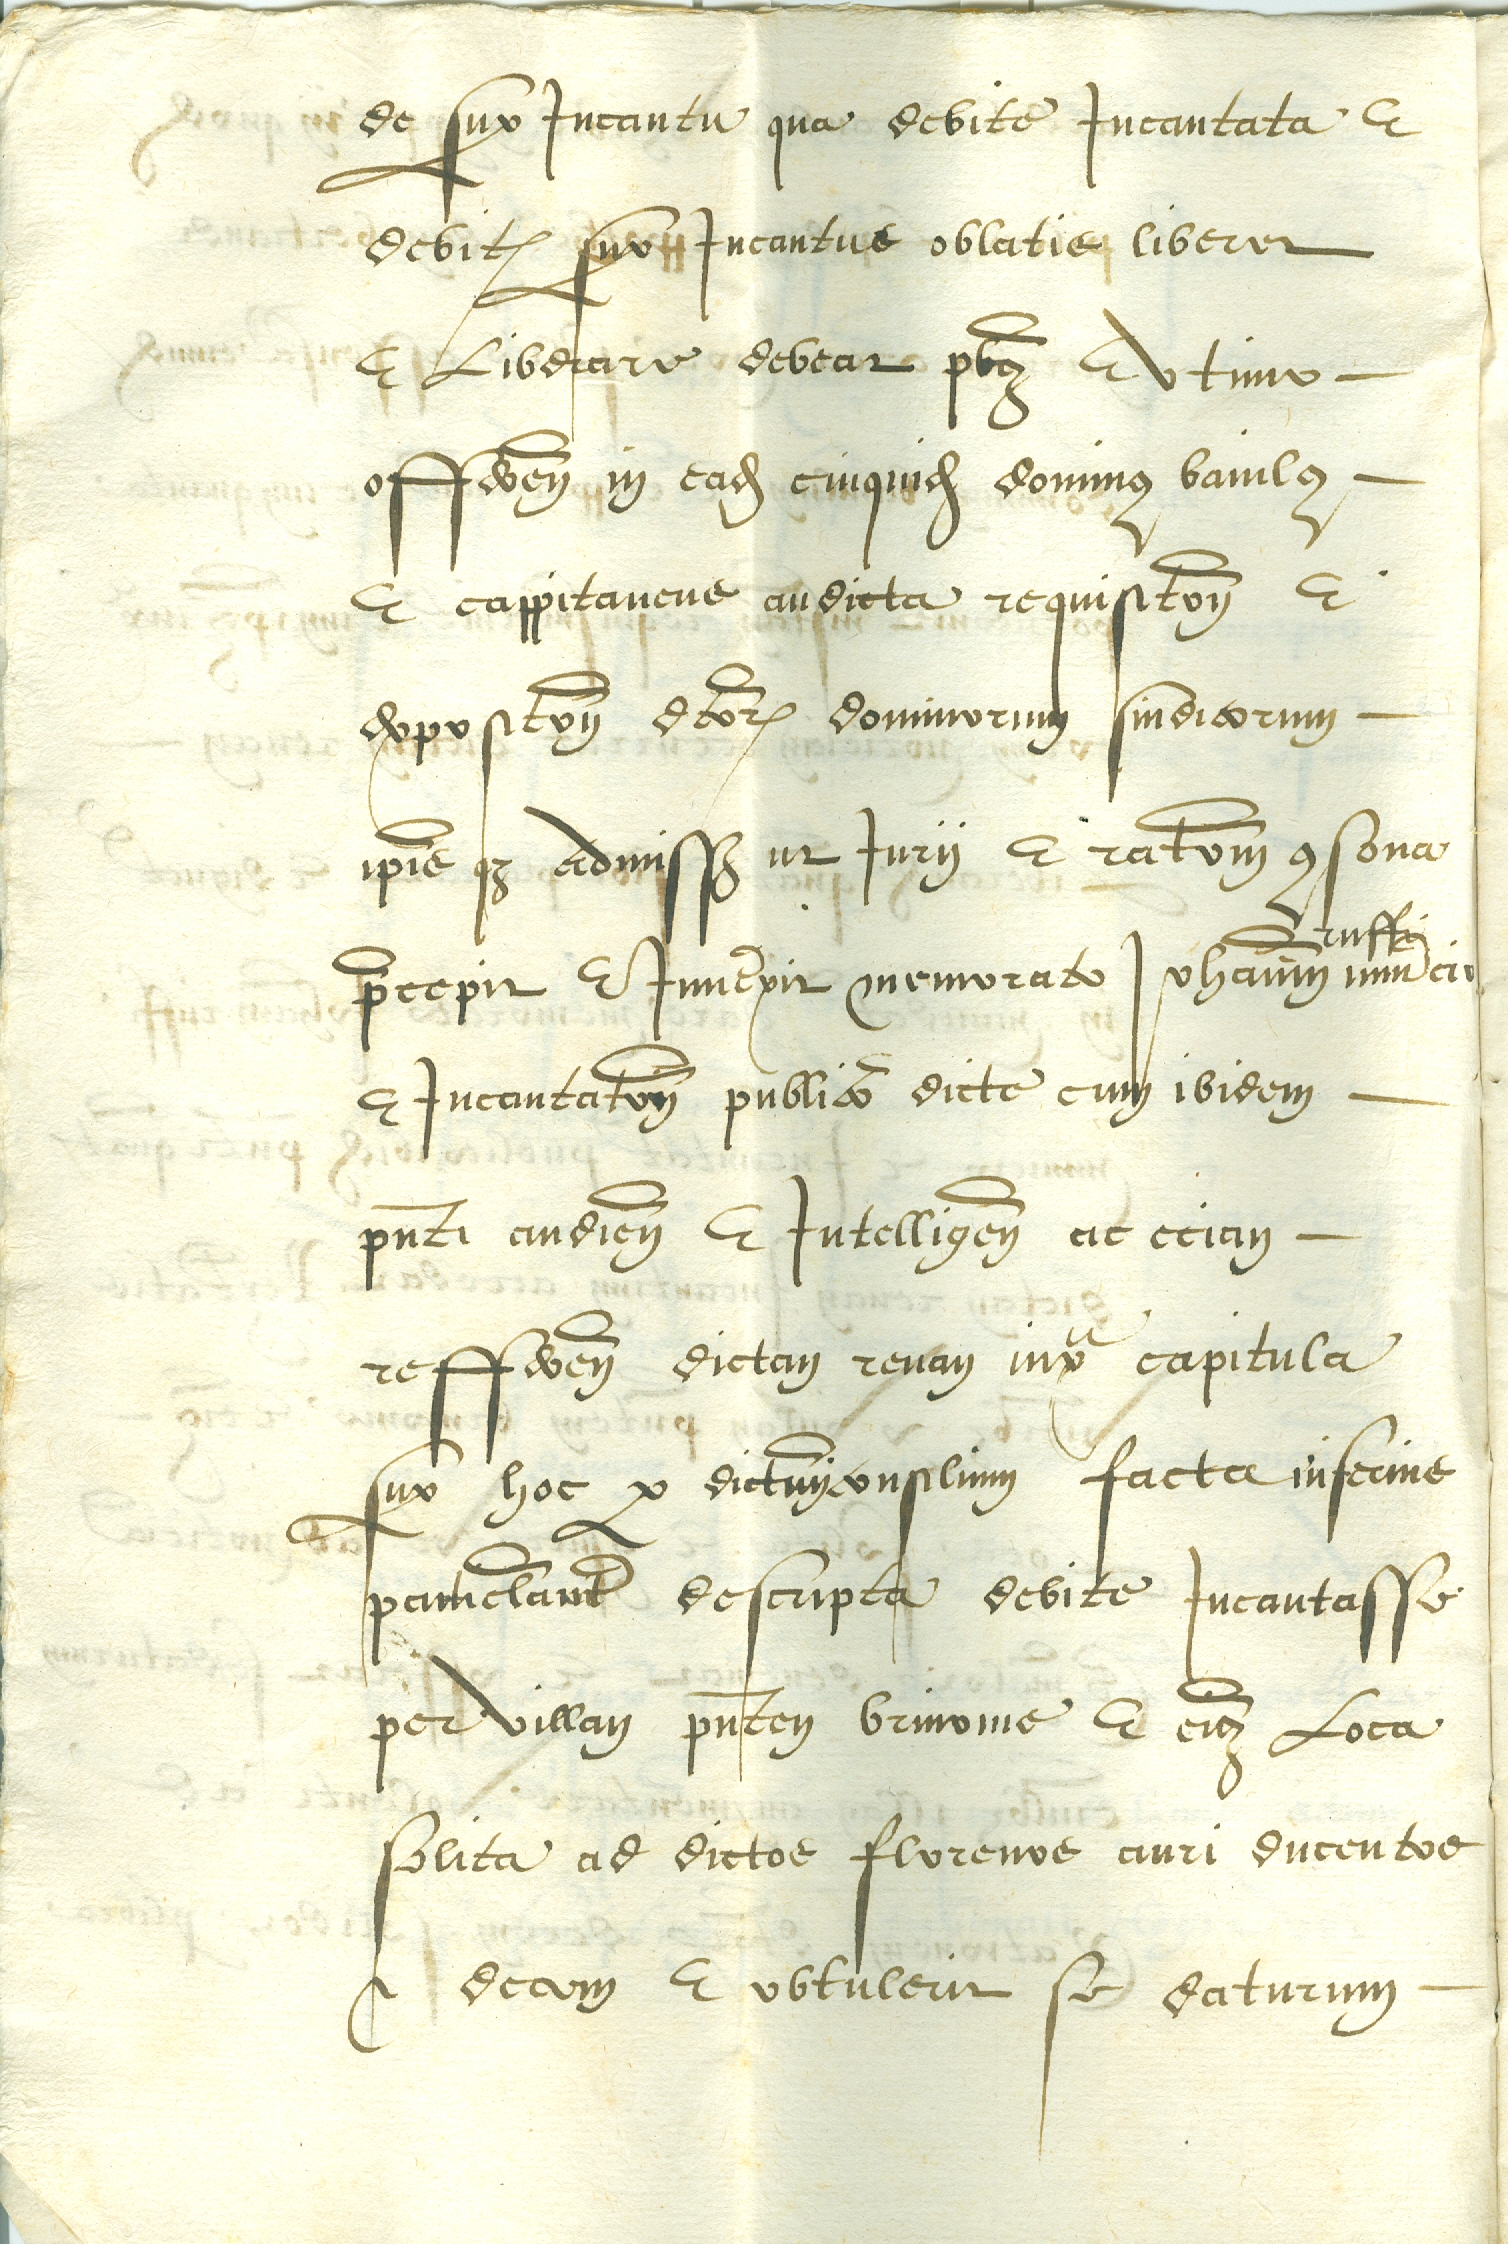 de sup Incantu qua debite Incantata et
debitis sup Incantus oblatis liberet
et Liberare debeat et ultimo
offerenti in eadem quiquidem dominus baiulus
et cappitaneus audicta requisitione et
expositione dictorum dominorum sindicorum
ipsis qz admissis ut Iuri et rationi consona
precepit et Iniunxit memorato Iohanni ruffi nuncio
et Incantatori publico dicte cum ibidem
pnti audienti et Intelligenti ac eciam
refferenti dictam revam iuxa capitula
sup hoc p dictum consilium facta inferius
particlariter descripta debite Incantasse
per villam pntem brinonie et eius Loca
solita ad dictos florenos auri ducentos
decem et obtulerit se daturum